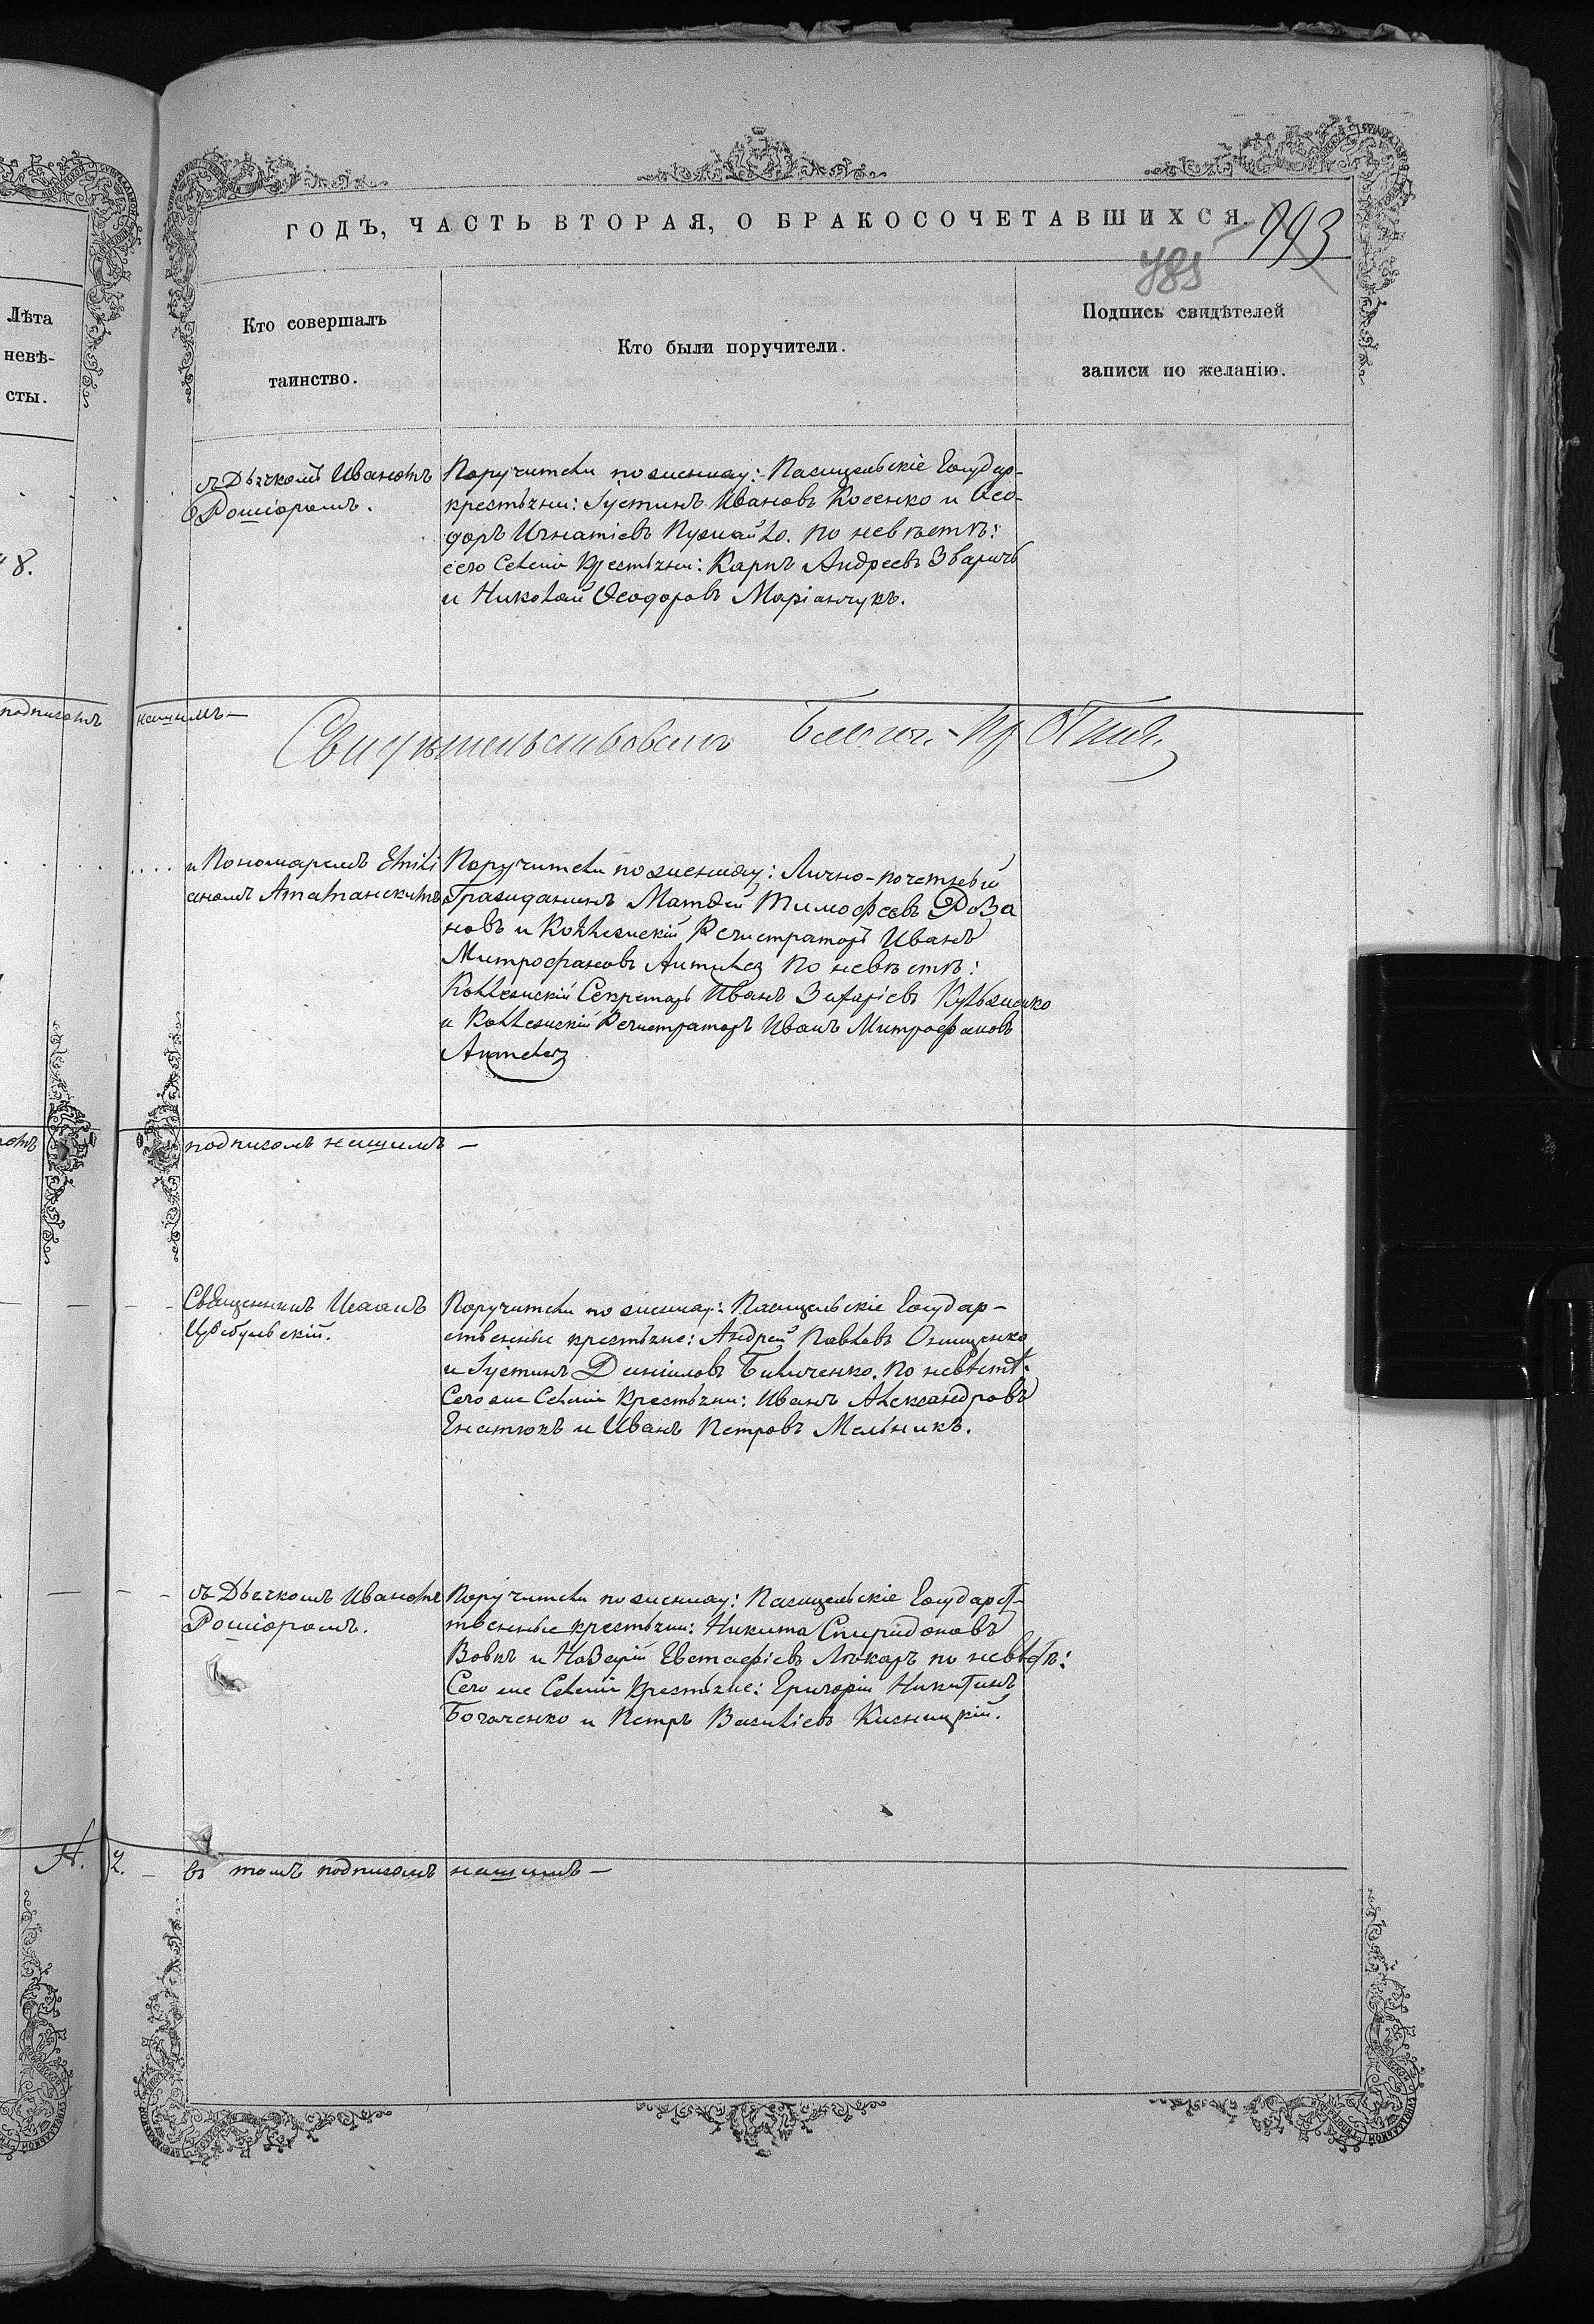 ГОДЪ, ЧАСТЬ ВТОРАЯ, О БРАКОСОЧЕТАВШИХСЯ.
993
785
Лѣта
невѣ-
сты.
Кто совершалъ
таинство.
Кто были поручители.
Подпись свидѣтелей
записи по желанію.
съ Дьячкомъ Иваномъ
Рошіоромъ.
Поручители по жениху: Пасицельскіе Государ-
крестьяни: Іустинъ Ивановъ Косенко и Ѳео-
доръ Игнатіевъ По невѣстѣ:
сего Селенія Крестьяни: Карпъ Андреевъ Зваричъ
и Николай Ѳеодоровъ Маріанчукъ.
18.
подписомъ нашимъ —
Свидѣтельствовалъ
и Пономаремъ Емилі
аномъ Аташанскимъ
Поручители по жениху: Лично-почетный
Гражданинъ Матѳей Тимофеевъ Роза
новъ и Коллежскій Регистраторъ Иванъ
Митрофановъ По невѣстѣ:
Коллежскій Секретарь Иванъ Захаріевъ
и Коллежскій Регистраторъ Иванъ Митрофановъ
подписомъ нашимъ —
Священникъ Иоаннъ
Цыбульскій.
Поручители по жениху: Пасицельскіе Государ-
ственные крестьяне: Андрей Павловъ Онищенко
и Іустинъ Даніиловъ Биличенко. По невѣстѣ:
Сего же Селенія Крестьяни: Иванъ Александровъ
Гнатюкъ и Иванъ Петровъ Мельникъ.
съ Дьячкомъ Иваномъ
Рошіоромъ.
Поручители по жениху: Пасицельскіе Государст-
твенные крестьяни: Никита Спиридоновъ
Вовкъ и Назарій Евстафіевъ Лѣкаръ по невѣстѣ:
Сего же Селенія Крестьяне: Григорій Никитинъ
Богаченко и Петръ Василіевъ Кисницкій.
А. Ц. — въ томъ подписомъ нашимъ —